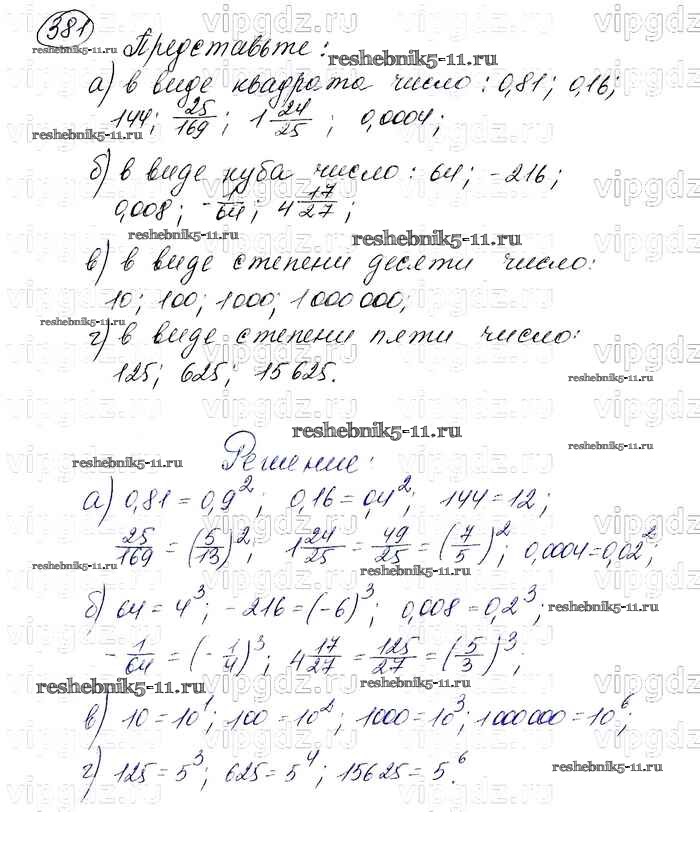 381 Представьте:
reshebnik5-11.ru
а) в виде квадрата число: 0,81; 0,16;
144; 25/169; 1 24/25; 0,0004;
reshebnik5-11.ru reshebnik5-11.ru
б) в виде куба число: 64; -216;
0,008; -1/64; 4 17/27;
reshebnik5-11.ru reshebnik5-11.ru
в) в виде степени десяти число:
10; 100; 1000; 1000000;
reshebnik5-11.ru
г) в виде степени пяти число:
125; 625; 15625.
reshebnik5-11.ru
reshebnik5-11.ru
reshebnik5-11.ru
reshebnik5-11.ru
Решение:
а) 0,81 = 0,9²; 0,16 = 0,4²; 144 = 12;
25/169 = (5/13)²; 1 24/25 = 49/25 = (7/5)²; 0,0004 = 0,02²;
reshebnik5-11.ru reshebnik5-11.ru
б) 64 = 4³; -216 = (-6)³; 0,008 = 0,2³;
reshebnik5-11.ru
-1/64 = (-1/4)³; 4 17/27 = 125/27 = (5/3)³;
reshebnik5-11.ru reshebnik5-11.ru
в) 10 = 10¹; 100 = 10²; 1000 = 10³; 1000000 = 10⁶;
г) 125 = 5³; 625 = 5⁴; 15625 = 5⁶.
reshebnik5-11.ru